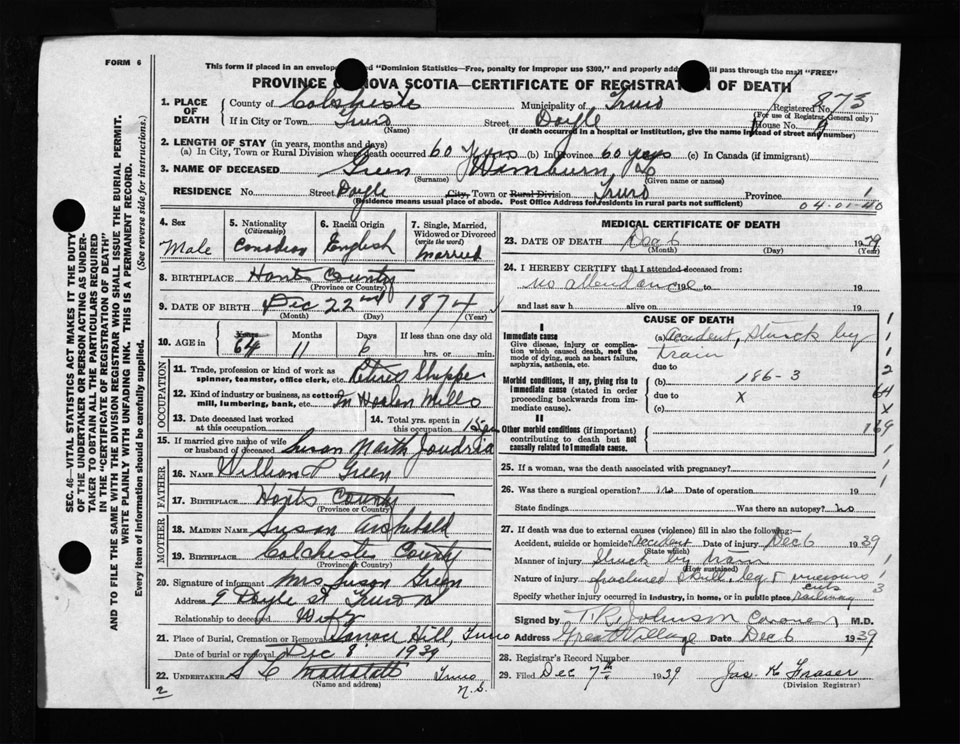 FORM 6
This form if placed in an envelope "Dominion Statistics—Free, penalty for improper use $300," and properly will pass through the mail "FREE"
PROVINCE OF NOVA SCOTIA—CERTIFICATE OF REGISTRATION OF DEATH
1. PLACE OF DEATH
County of Colchester Municipality of Truro Registered No. 873
(For use of Registrar General only)
If in City or Town Truro Street Doyle House No. 9
(Name) (If death occurred in a hospital or institution, give the name instead of street and number)
2. LENGTH OF STAY (in years, months and days)
(a) In City, Town or Rural Division where death occurred 60 years (b) In Province 60 years (c) In Canada (if immigrant)
3. NAME OF DECEASED Green
(Surname) (Given name or names)
RESIDENCE No. Street Doyle City, Town or Rural Division Truro Province 1
(Residence means usual place of abode. Post Office Address for residents in rural parts not sufficient) 04-01-40
4. Sex Male
5. Nationality (Citizenship) Canadian
6. Racial Origin English
7. Single, Married, Widowed or Divorced (write the word) Married
8. BIRTHPLACE Hants County
(Province or County)
9. DATE OF BIRTH Dec 22nd 1874
(Month) (Day) (Year)
10. AGE in Years 64 Months 11 Days 6 If less than one day old hrs. or min.
OCCUPATION
11. Trade, profession or kind of work as spinner, teamster, office clerk, etc. Retired Shipper
12. Kind of industry or business, as cotton mill, lumbering, bank, etc. In Woolen Mills
13. Date deceased last worked at this occupation
14. Total yrs. spent in this occupation
15. If married give name of wife or husband of deceased Susan
FATHER
16. NAME William P. Green
17. BIRTHPLACE Hants County
(Province or County)
MOTHER
18. MAIDEN NAME Susan Archibald
19. BIRTHPLACE Colchester County
(Province or County)
20. Signature of informant Mrs Susan Green
Address 9 Doyle St Truro NS
Relationship to deceased Wife
21. Place of Burial, Cremation or Removal Hill, Truro
Date of burial or removal Dec 8 1939
22. UNDERTAKER Truro N.S.
(Name and address)
2
MEDICAL CERTIFICATE OF DEATH
23. DATE OF DEATH Dec 6 1939
(Month) (Day) (Year)
24. I HEREBY CERTIFY that I attended deceased from:
no attendance 19 to 19
and last saw h alive on 19
CAUSE OF DEATH
I
Immediate cause
Give disease, injury or complication which caused death, not the mode of dying, such as heart failure, asphyxia, asthenia, etc.
(a) Accident, Struck by train
due to
Morbid conditions, if any, giving rise to immediate cause (stated in order proceeding backwards from immediate cause).
(b) 186-3
due to X
(c)
II
Other morbid conditions (if important) contributing to death but not causally related to immediate cause.
25. If a woman, was the death associated with pregnancy?
26. Was there a surgical operation? no Date of operation 19
State findings Was there an autopsy? no
27. If death was due to external causes (violence) fill in also the following:—
Accident, suicide or homicide? accident Date of injury Dec 6 1939
(State which)
Manner of injury Struck by train
(How sustained)
Nature of injury fractured skull, leg + numerous cuts
Specify whether injury occurred in industry, in home, or in public place railway 3
Signed by T. R. Johnson Coroner M.D.
Address Great Village Date Dec 6 1939
28. Registrar's Record Number
29. Filed Dec 7th 1939 Jas. H Fraser
(Division Registrar)
SEC. 46—VITAL STATISTICS ACT MAKES IT THE DUTY OF THE UNDERTAKER OR PERSON ACTING AS UNDERTAKER TO OBTAIN ALL THE PARTICULARS REQUIRED IN THE "CERTIFICATE OF REGISTRATION OF DEATH"
AND TO FILE THE SAME WITH THE DIVISION REGISTRAR WHO SHALL ISSUE THE BURIAL PERMIT.
WRITE PLAINLY WITH UNFADING INK. THIS IS A PERMANENT RECORD.
Every item of information should be carefully supplied. (See reverse side for instructions.)